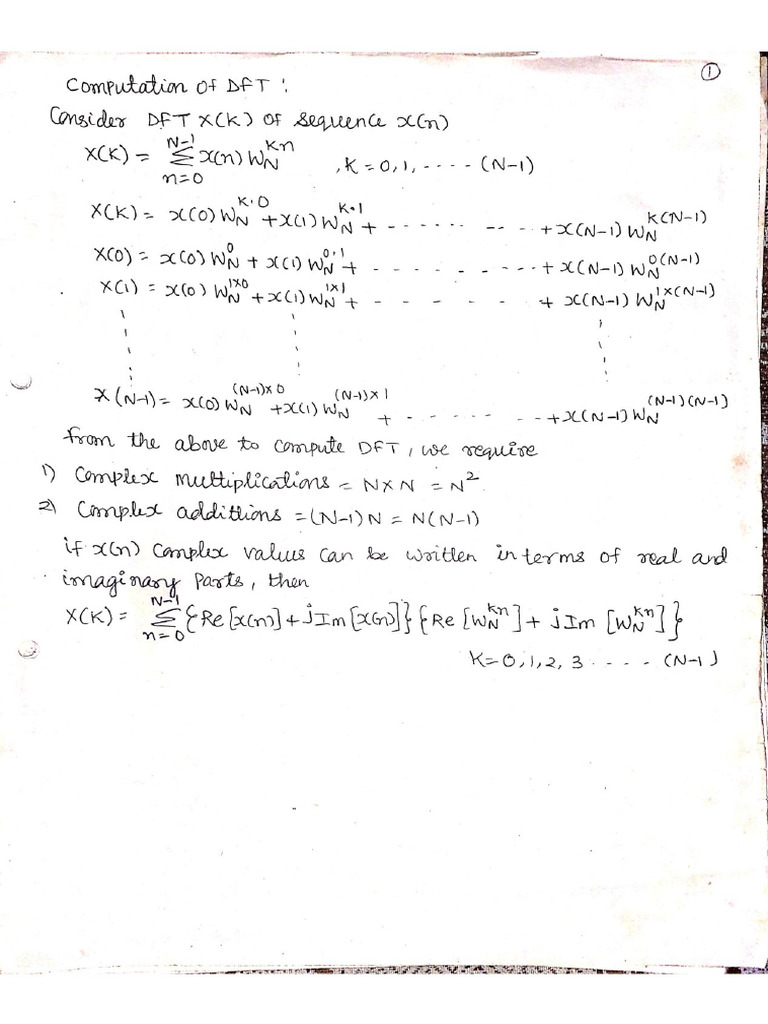 ①
Computation of DFT :
Consider DFT X(K) of sequence x(n)
X(K) = Σ_{n=0}^{N-1} x(n) W_N^{Kn} , K = 0, 1, ---- (N-1)
X(K) = x(0) W_N^{K·0} + x(1) W_N^{K·1} + ------ --- + x(N-1) W_N^{K(N-1)}
X(0) = x(0) W_N^{0} + x(1) W_N^{0·1} + --------- + x(N-1) W_N^{0(N-1)}
X(1) = x(0) W_N^{1×0} + x(1) W_N^{1×1} + - - - - - + x(N-1) W_N^{1×(N-1)}
X(N-1) = x(0) W_N^{(N-1)×0} + x(1) W_N^{(N-1)×1} + ------- + x(N-1) W_N^{(N-1)(N-1)}
from the above to compute DFT, we require
1) Complex multiplications = N×N = N²
2) Complex addittions = (N-1)N = N(N-1)
if x(n) complex values can be written in terms of real and
imaginary parts, then
X(K) = Σ_{n=0}^{N-1} {Re[x(n)] + j Im[x(n)]} {Re[W_N^{kn}] + j Im[W_N^{kn}]}
K = 0, 1, 2, 3 ---- (N-1)